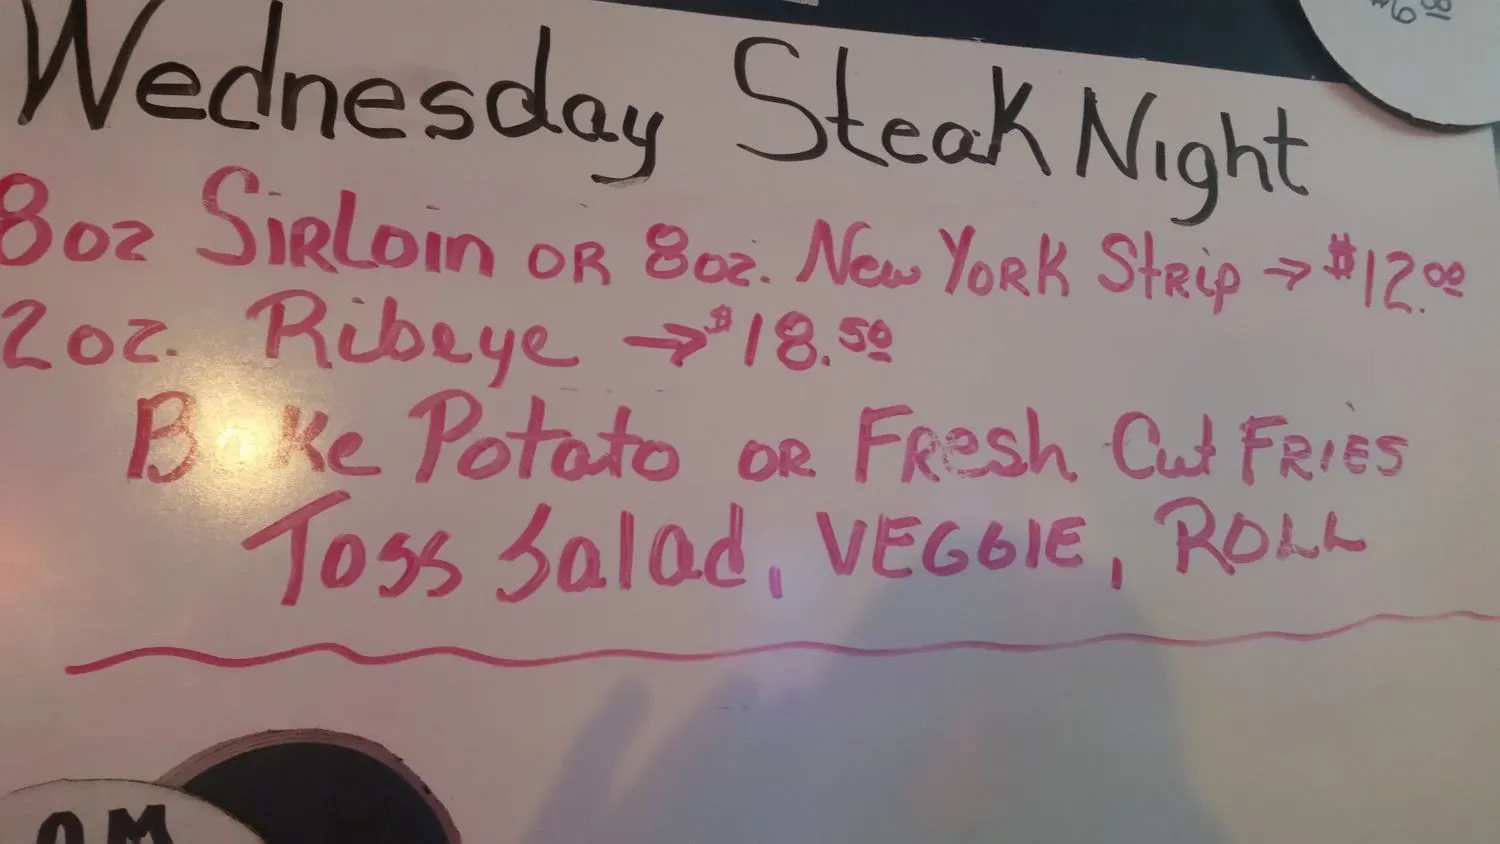 $6.00
Wednesday Steak Night
8oz Sirloin or 8oz. New York Strip → $12.00
2oz. Ribeye → $18.50
Bake Potato or Fresh Cut Fries
Toss Salad, VEGGIE, ROLL
AM